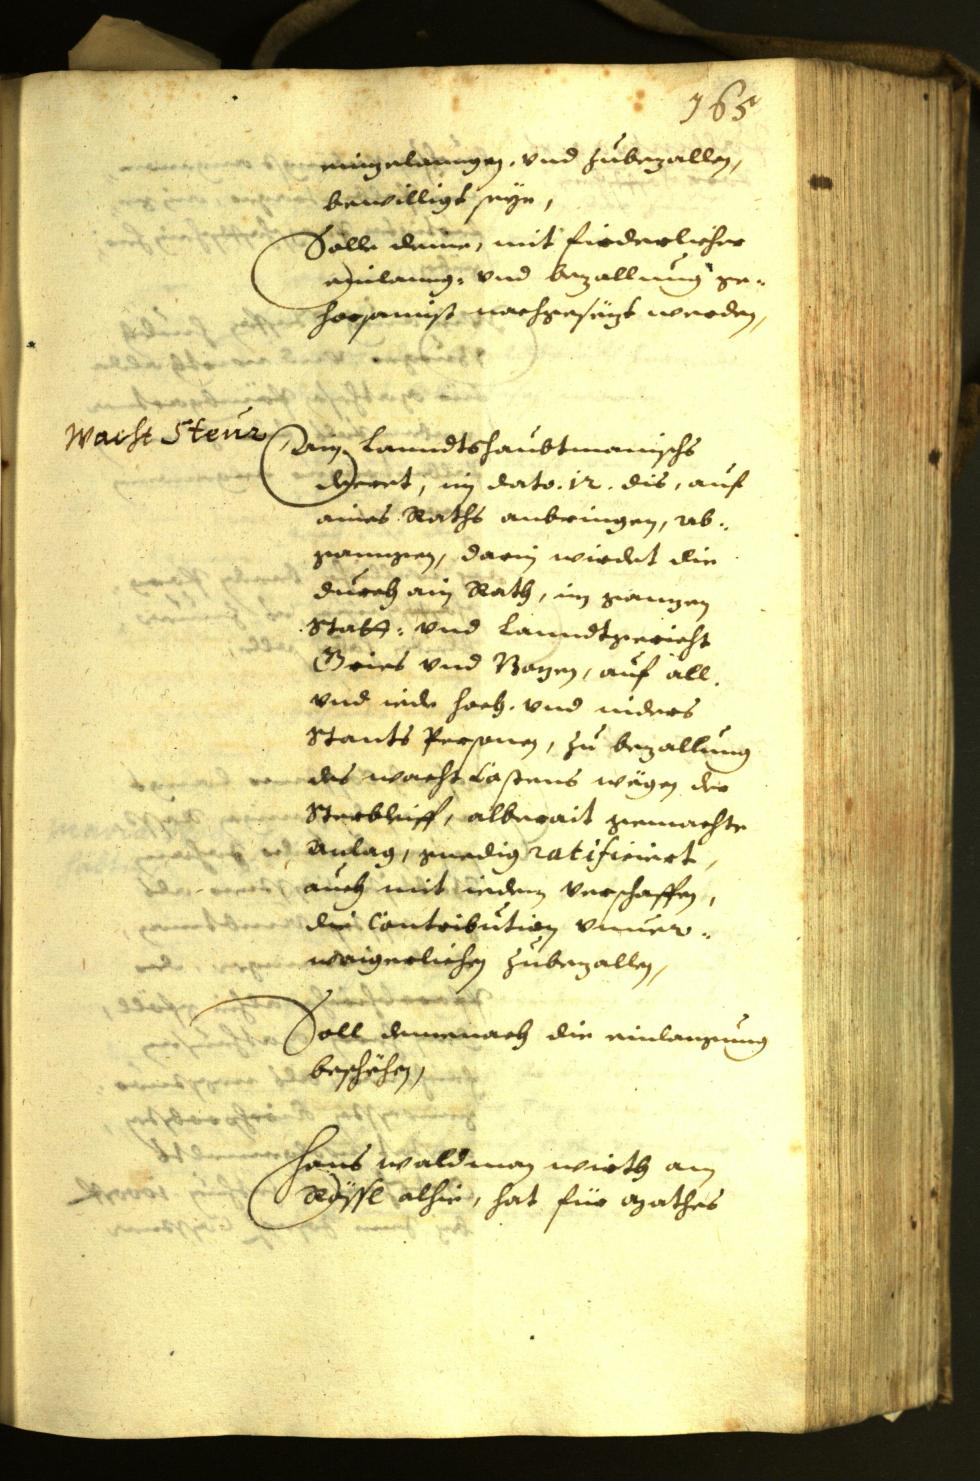 165
einzelanngen, vnd zubezallen,
bewilligt seye,
Solle deme, mit fürderlicher
einlanng- vnd bezallung ge-
horsamist nachgesezt werden,
Wacht Steur
Ain Lanndtshaubtmanischs
decret, in dato .12. dis, auf
aines Raths anbringen, ab-
gangen, darin wirdet die
durch ain Rath, im ganzen
Statt- vnd Lanndtgericht
Gries vnd Bozen, auf all
vnd iede hoch- vnd niders
Stants Personen, zu bezallung
des wacht Cosstens wegen der
Sterbleiff, alberait gemachte
Anlag, gnedig ratificiert,
auch mit iedem verschaffen,
die Contribution vnuer-
waigerlichen zubezallen,
Soll demenach die einlanngung
beschehen,
Hans waldman wirth am
Rössl alhie, hat für Agathes